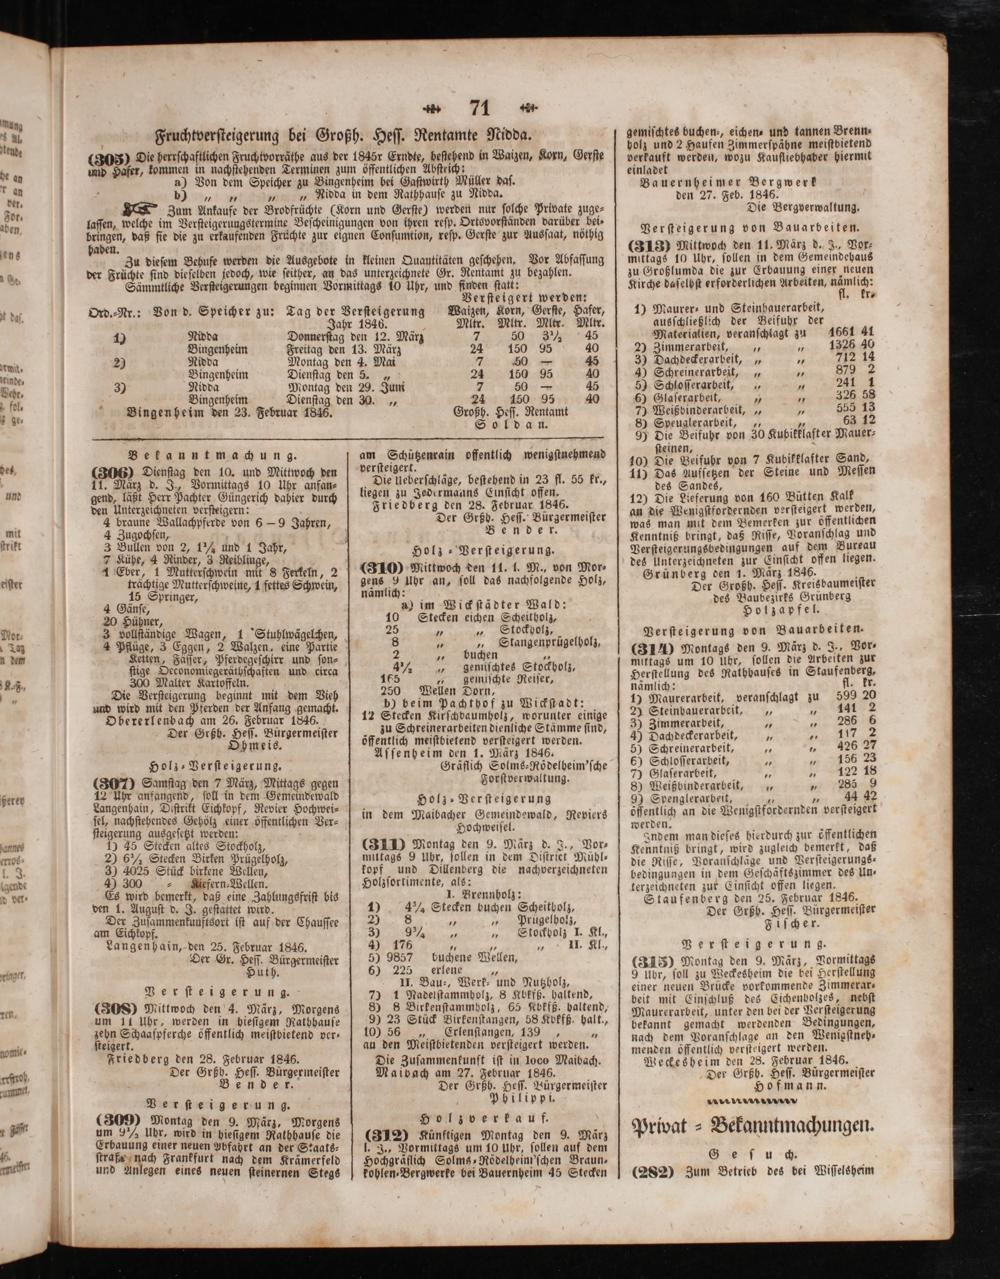 71
Fruchtversteigerung bei Großh. Hess. Rentamte Nidda.
(305) Die herrschaftlichen Fruchtvorräthe aus der 1845r Erndte, bestehend in Waizen, Korn, Gerste
und Hafer, kommen in nachstehenden Terminen zum öffentlichen Absteich:
a) Von dem Speicher zu Bingenheim bei Gastwirth Müller das.
b) „ „ „ „ Nidda in dem Rathhause zu Nidda.
Zum Ankaufe der Brodfrüchte (Korn und Gerste) werden nur solche Private zuge-
lassen, welche im Versteigerungstermine Bescheinigungen von ihren resp. Ortsvorständen darüber bei-
bringen, daß sie die zu erkaufenden Früchte zur eignen Consumtion, resp. Gerste zur Aussaat, nöthig
haben.
Zu diesem Behufe werden die Ausgebote in kleinen Quantitäten geschehen. Vor Abfassung
der Früchte sind dieselben jedoch, wie seither, an das unterzeichnete Gr. Rentamt zu bezahlen.
Sämmtliche Versteigerungen beginnen Vormittags 10 Uhr, und finden statt:
Versteigert werden:
Ord.-Nr.: Von d. Speicher zu: Tag der Versteigerung Waizen, Korn, Gerste, Hafer,
Jahr 1846. Mltr. Mltr. Mltr. Mltr.
1) Nidda Donnerstag den 12. März 7 50 3½ 45
Bingenheim Freitag den 13. März 24 150 95 40
2) Nidda Montag den 4. Mai 7 50 — 45
Bingenheim Dienstag den 5. „ 24 150 95 40
3) Nidda Montag den 29. Juni 7 50 — 45
Bingenheim Dienstag den 30. „ 24 150 95 40
Bingenheim den 23. Februar 1846. Großh. Hess. Rentamt
Soldan.
Bekanntmachung.
(306) Dienstag den 10. und Mittwoch den
11. März d. J., Vormittags 10 Uhr anfan-
gend, läßt Herr Pachter Güngerich dahier durch
den Unterzeichneten versteigern:
4 braune Wallachpferde von 6 — 9 Jahren,
4 Zugochsen,
3 Bullen von 2, 1¼ und 1 Jahr,
7 Kühe, 4 Rinder, 3 Reiblinge,
1 Eber, 1 Mutterschwein mit 8 Ferkeln, 2
trächtige Mutterschweine, 1 fettes Schwein,
15 Springer,
4 Gänse,
20 Hühner,
3 vollständige Wagen, 1 Stuhlwägelchen,
4 Pflüge, 3 Eggen, 2 Walzen, eine Partie
Ketten, Fässer, Pferdegeschirr und son-
stige Oeconomiegeräthschaften und circa
300 Malter Kartoffeln.
Die Versteigerung beginnt mit dem Vieh
und wird mit den Pferden der Anfang gemacht.
Obererlenbach am 26. Februar 1846.
Der Großh. Hess. Bürgermeister
Ohmeis.
Holz-Versteigerung.
(307) Samstag den 7 März, Mittags gegen
12 Uhr anfangend, soll in dem Gemeindewald
Langenhain, Distrikt Eichkopf, Revier Hochwei-
sel, nachstehendes Gehölz einer öffentlichen Ver-
steigerung ausgesetzt werden:
1) 45 Stecken altes Stockholz,
2) 6½ Stecken Birken Prügelholz,
3) 4025 Stück birkene Wellen,
4) 300 „ Kiefern-Wellen.
Es wird bemerkt, daß eine Zahlungsfrist bis
den 1. August d. J. gestattet wird.
Der Zusammenkunftsort ist auf der Chaussee
am Eichkopf.
Langenhain, den 25. Februar 1846.
Der Gr. Hess. Bürgermeister
Huth.
Versteigerung.
(308) Mittwoch den 4. März, Morgens
um 11 Uhr, werden in hiesigem Rathhause
zehn Schaafpferche öffentlich meistbietend ver-
steigert.
Friedberg den 28. Februar 1846.
Der Grßh. Hess. Bürgermeister
Bender.
Versteigerung.
(309) Montag den 9. März, Morgens
um 9½ Uhr, wird in hiesigem Rathhause die
Erbauung einer neuen Abfahrt an der Staats-
straße nach Frankfurt nach dem Krämerfeld
und Anlegen eines neuen steinernen Stegs
am Schützenrain öffentlich wenigstnehmend
versteigert.
Die Ueberschläge, bestehend in 23 fl. 55 kr.,
liegen zu Jedermanns Einsicht offen.
Friedberg den 28. Februar 1846.
Der Grßh. Hess. Bürgermeister
Bender.
Holz-Versteigerung.
(310) Mittwoch den 11. l. M., von Mor-
gens 9 Uhr an, soll das nachfolgende Holz,
nämlich:
a) im Wickstädter Wald:
10 Stecken eichen Scheitholz,
25 „ „ Stockholz,
8 „ „ Stangenprügelholz,
2 „ buchen „
4½ „ gemischtes Stockholz,
165 „ gemischte Reiser,
250 Wellen Dorn,
b) beim Pachthof zu Wickstadt:
12 Stecken Kirschbaumholz, worunter einige
zu Schreinerarbeiten dienliche Stämme sind,
öffentlich meistbietend versteigert werden.
Assenheim den 1. März 1846.
Gräflich Solms-Rödelheim'sche
Forstverwaltung.
Holz-Versteigerung
in dem Maibacher Gemeindewald, Reviers
Hochweisel.
(311) Montag den 9. März d. J., Vor-
mittags 9 Uhr, sollen in dem District Mühl-
kopf und Dillenberg die nachverzeichneten
Holzsortimente, als:
I. Brennholz:
1) 4¾ Stecken buchen Scheitholz,
2) 8 „ „ Prügelholz,
3) 9¾ „ „ Stockholz I. Kl.,
4) 176 „ „ „ II. Kl.,
5) 9857 buchene Wellen,
6) 225 erlene „
II. Bau-, Werk- und Nutzholz,
7) 1 Nadelstammholz, 8 Kbkfß. haltend,
8) 8 Birkenstammholz, 65 Kbkfß. haltend,
9) 23 Stück Birkenstangen, 58 Kbkfß. halt.,
10) 56 „ Erlenstangen, 139 „ „
an den Meistbietenden versteigert werden.
Die Zusammenkunft ist in loco Maibach.
Maibach am 27. Februar 1846.
Der Grßh. Hess. Bürgermeister
Philippi.
Holzverkauf.
(312) Künftigen Montag den 9. März
l. J., Vormittags um 10 Uhr, sollen auf dem
Hochgräflich Solms-Rödelheim'schen Braun-
kohlen-Bergwerke bei Bauernheim 45 Stecken
gemischtes buchen-, eichen- und tannen Brenn-
holz und 2 Haufen Zimmerspähne meistbietend
verkauft werden, wozu Kaufliebhaber hiermit
einladet
Bauernheimer Bergwerk
den 27. Feb. 1846.
Die Bergverwaltung.
Versteigerung von Bauarbeiten.
(313) Mittwoch den 11. März d. J., Vor-
mittags 10 Uhr, sollen in dem Gemeindehaus
zu Großlumda die zur Erbauung einer neuen
Kirche daselbst erforderlichen Arbeiten, nämlich:
fl. kr.
1) Maurer- und Steinhauerarbeit,
ausschließlich der Beifuhr der
Materialien, veranschlagt zu 1661 41
2) Zimmerarbeit, „ „ 1326 40
3) Dachdeckerarbeit, „ „ 712 14
4) Schreinerarbeit, „ „ 879 2
5) Schlosserarbeit, „ „ 241 1
6) Glaserarbeit, „ „ 326 58
7) Weißbinderarbeit, „ „ 555 13
8) Spenglerarbeit, „ „ 63 12
9) Die Beifuhr von 30 Kubikklafter Mauer-
steinen,
10) Die Beifuhr von 7 Kubikklafter Sand,
11) Das Aufsetzen der Steine und Messen
des Sandes,
12) Die Lieferung von 160 Bütten Kalk
an die Wenigstfordernden versteigert werden,
was man mit dem Bemerken zur öffentlichen
Kenntniß bringt, daß Risse, Voranschlag und
Versteigerungsbedingungen auf dem Bureau
des Unterzeichneten zur Einsicht offen liegen.
Grünberg den 1. März 1846.
Der Großh. Hess. Kreisbaumeister
des Baubezirks Grünberg
Holzapfel.
Versteigerung von Bauarbeiten.
(314) Montags den 9. März d. J., Vor-
mittags um 10 Uhr, sollen die Arbeiten zur
Herstellung des Rathhauses in Staufenberg,
nämlich: fl. kr.
1) Maurerarbeit, veranschlagt zu 599 20
2) Steinhauerarbeit, „ „ 141 2
3) Zimmerarbeit, „ „ 286 6
4) Dachdeckerarbeit, „ „ 117 2
5) Schreinerarbeit, „ „ 426 27
6) Schlosserarbeit, „ „ 156 23
7) Glaserarbeit, „ „ 122 18
8) Weißbinderarbeit, „ „ 285 9
9) Spenglerarbeit, „ „ 44 42
öffentlich an die Wenigstfordernden versteigert
werden.
Indem man dieses hierdurch zur öffentlichen
Kenntniß bringt, wird zugleich bemerkt, daß
die Risse, Voranschläge und Versteigerungs-
bedingungen in dem Geschäftszimmer des Un-
terzeichneten zur Einsicht offen liegen.
Staufenberg den 25. Februar 1846.
Der Grßh. Hess. Bürgermeister
Fischer.
Versteigerung.
(315) Montag den 9. März, Vormittags
9 Uhr, soll zu Weckesheim die bei Herstellung
einer neuen Brücke vorkommende Zimmerar-
beit mit Einschluß des Eichenholzes, nebst
Maurerarbeit, unter den bei der Versteigerung
bekannt gemacht werdenden Bedingungen,
nach dem Voranschlage an den Wenigstneh-
menden öffentlich versteigert werden.
Weckesheim den 28. Februar 1846.
Der Grßh. Hess. Bürgermeister
Hofmann.
Privat-Bekanntmachungen.
Gesuch.
(282) Zum Betrieb des bei Wisselsheim